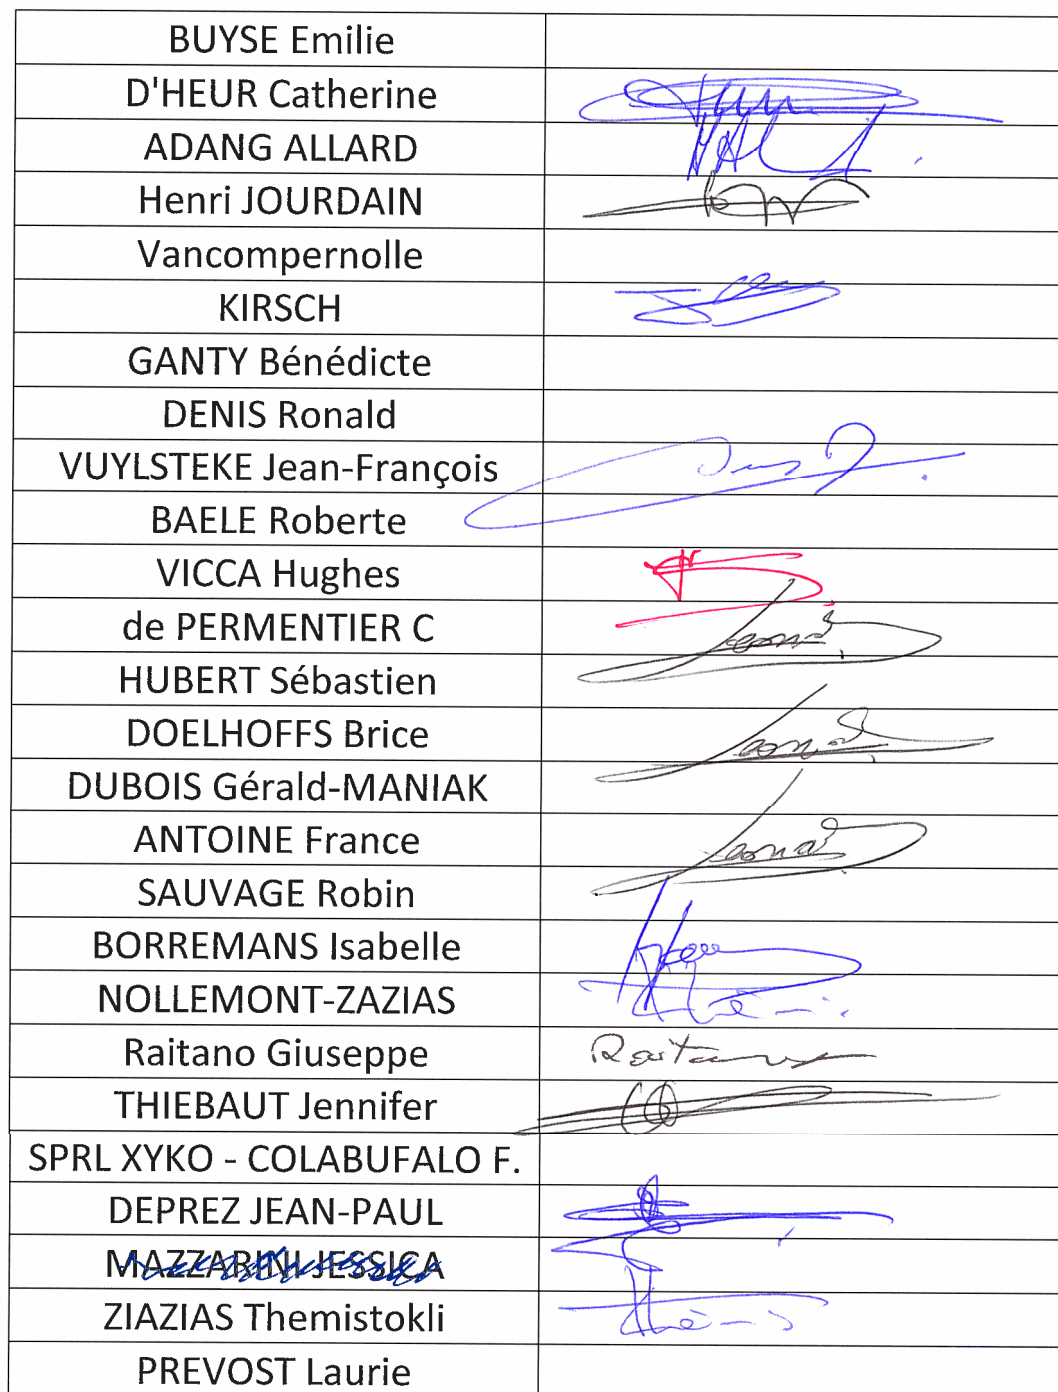 BUYSE Emilie
D'HEUR Catherine
ADANG ALLARD
Henri JOURDAIN
Vancompernolle
KIRSCH
GANTY Bénédicte
DENIS Ronald
VUYLSTEKE Jean-François
BAELE Roberte
VICCA Hughes
de PERMENTIER C
HUBERT Sébastien
DOELHOFFS Brice
DUBOIS Gérald-MANIAK
ANTOINE France
SAUVAGE Robin
BORREMANS Isabelle
NOLLEMONT-ZAZIAS
Raitano Giuseppe
THIEBAUT Jennifer
SPRL XYKO - COLABUFALO F.
DEPREZ JEAN-PAUL
MAZZARINI JESSICA
ZIAZIAS Themistokli
PREVOST Laurie